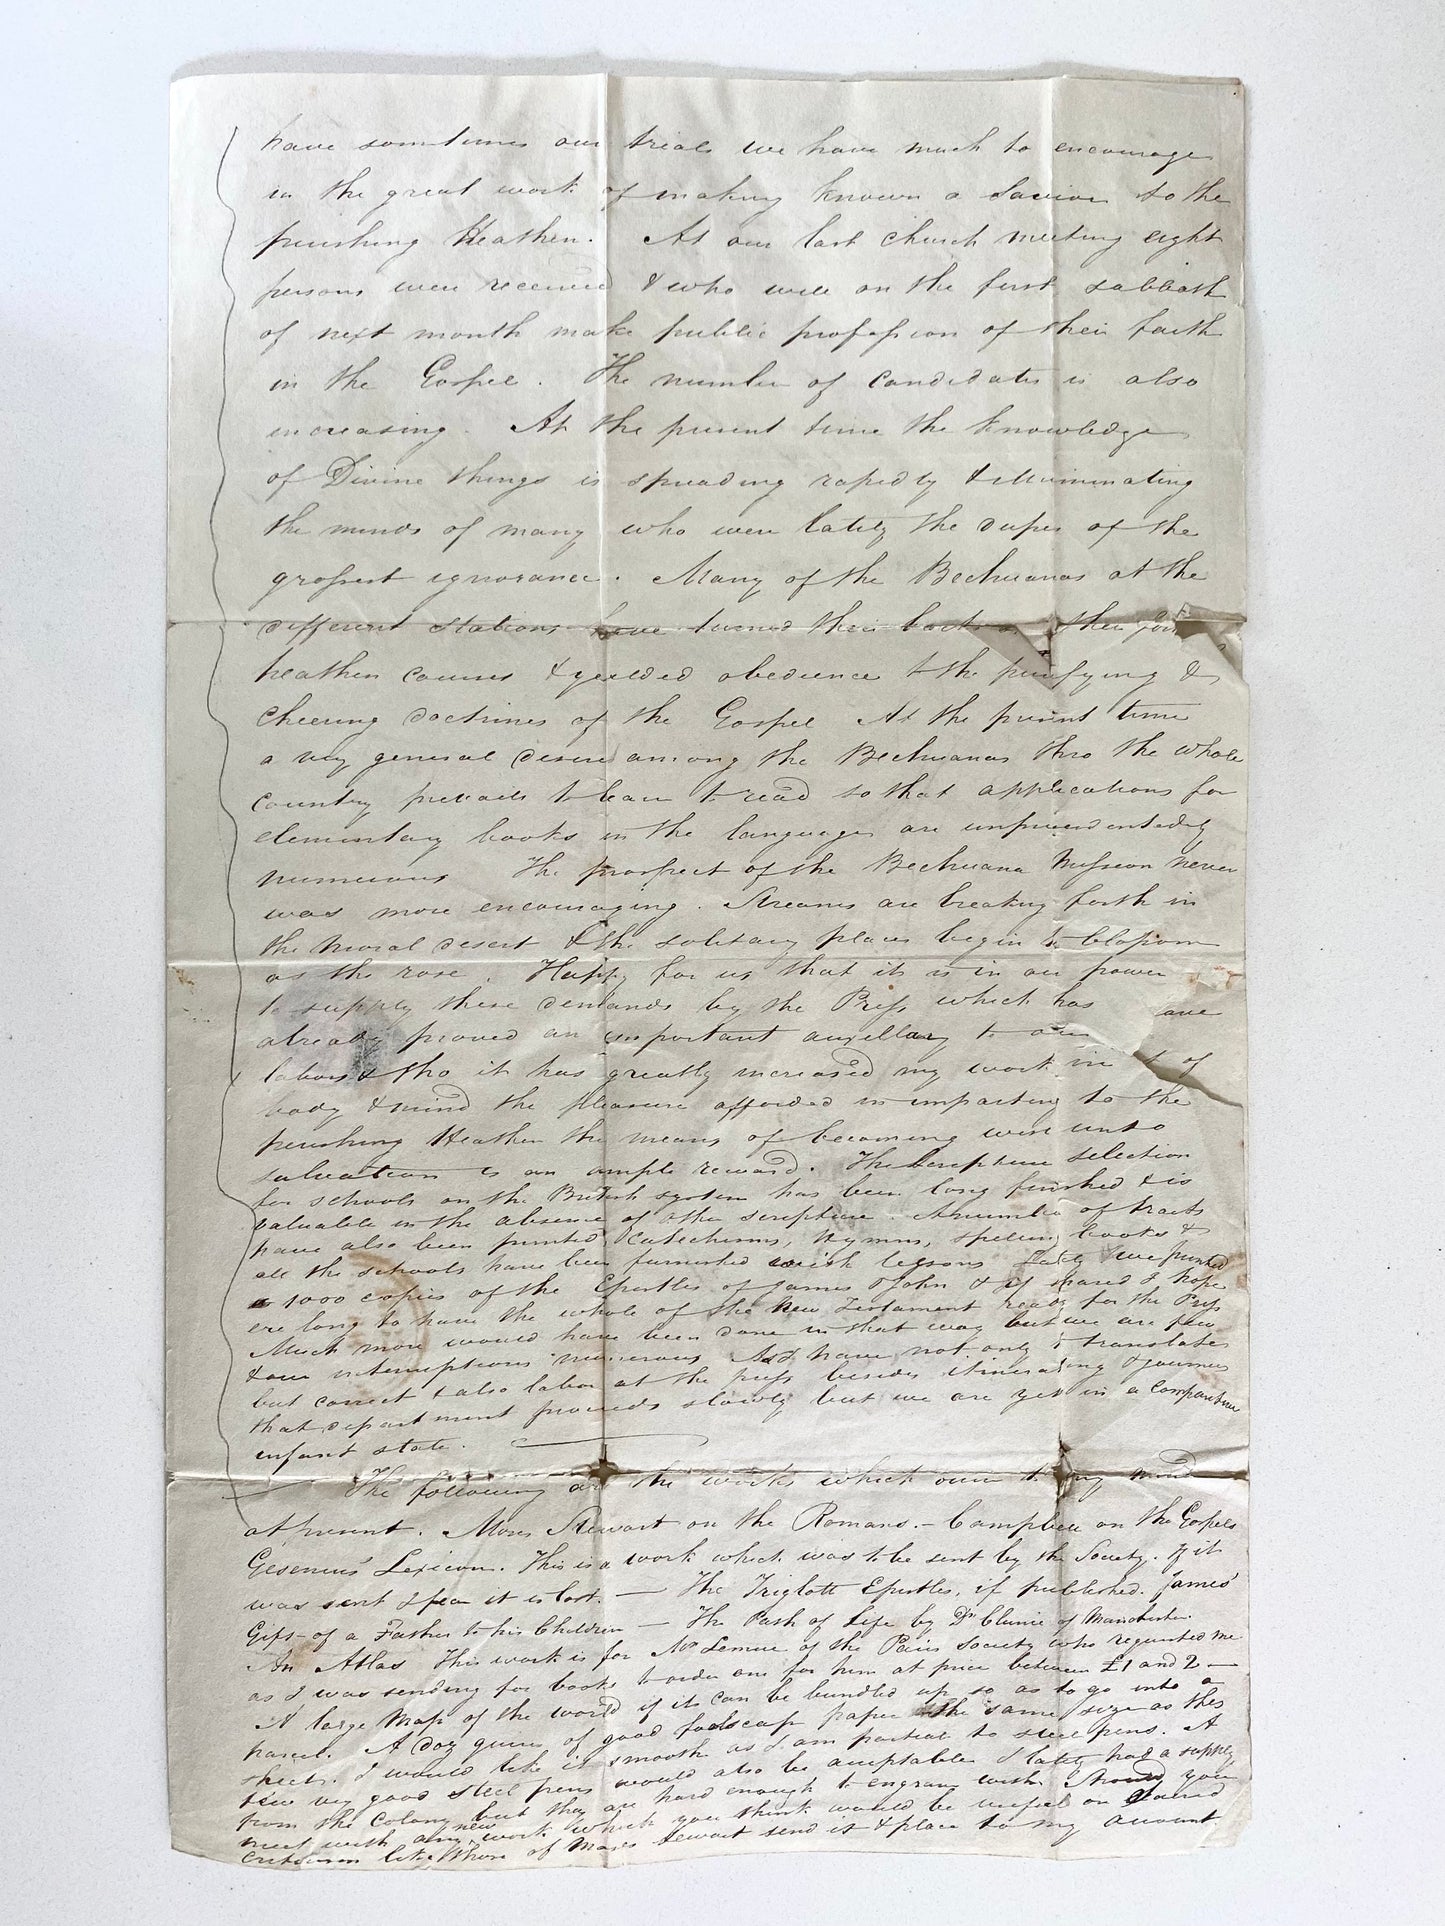 have sometimes our trials we have much to encourage
in the great work of making known a Savior to the
perishing Heathen. At our last church meeting eight
persons were received & who will on the first sabbath
of next month make public profession of their faith
in the Gospel. The number of candidates is also
increasing. At the present time the knowledge
of Divine things is spreading rapidly & illuminating
the minds of many who were lately the dupes of the
grossest ignorance. Many of the Bechuanas at the
different stations have turned their backs on their
heathen courses & yielded obedience to the purifying &
cheering doctrines of the Gospel At the present time
a very general desire among the Bechuanas thro the whole
country prevails to learn to read so that applications for
elementary books in the language are unprecedentedly
numerous The prospect of the Bechuana Mission never
was more encouraging. Streams are breaking forth in
the moral desert & the solitary places begin to blossom
as the rose. Happy for us that it is in our power
to supply these demands by the Press which has
already proved an important auxillary to our
labors & tho it has greatly increased my work in of
body & mind the pleasure afforded in imparting to the
perishing Heathen the means of becoming wise unto
salvation is an ample reward. The Scripture selection
for schools on the British system has been long finished & is
valuable in the absence of other scripture. A number of tracts
have also been printed, Catechisms, Hymns, spelling books &
all the schools have been furnished with lessons Lately we printed
1000 copies of the Epistles of James & John & if spared I hope
ere long to have the whole of the New Testament ready for the Press
Much more would have been done in that way but we are few
& our interruptions numerous As I have not only to translate
but correct & also labor at the press besides itinerating & journeys
that department proceeds slowly but we are yet in a comparative
infant state.
The following are the works which occur to my mind
at present. Moses Stewart on the Romans. - Campbell on the Gospels
Gesenius' Lexicon. This is a work which was to be sent by the Society. If it
was sent I fear it is lost. — The Triglott Epistles, if published. James'
Gift of a Father to his Children — The Path of Life by Dr Clunie of Manchester.
An Atlas This work is for Mr Lemue of the Paris Society who requested me
as I was sending for books to order one for him at price between £1 and 2 —
A large Map of the world if it can be bundled up so as to go into a
parcel. A doz quires of good foolscap paper the same size as this
sheet. I would like it smooth as I am partial to steel pens. A
few very good steel pens would also be acceptable I lately had a supply
from the Colony but they are hard enough to engrave with Should you
meet with any new work which you think would be useful on Sacred
criticism like those of Moses Stewart send it & place to my account